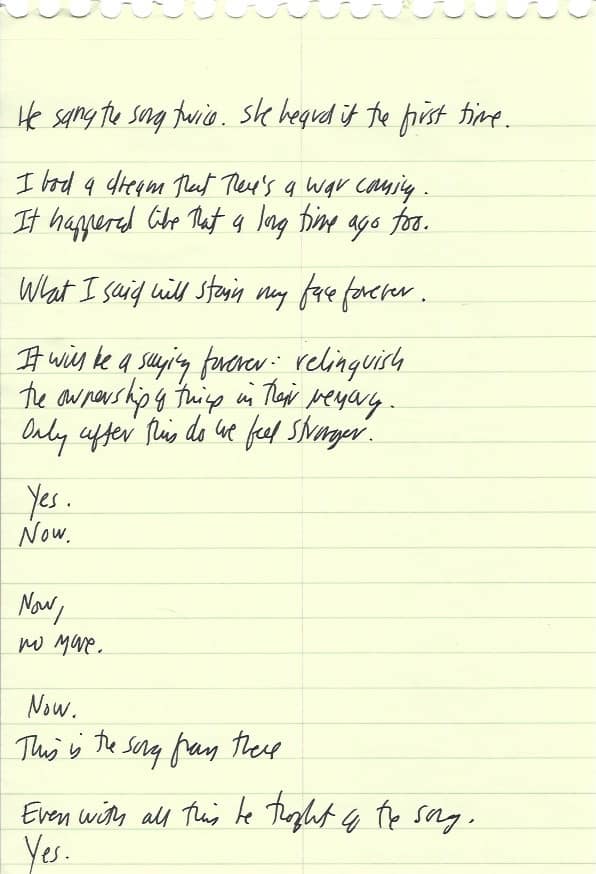 He sang the song twice. She heard it the first time.
I had a dream that there's a war coming.
It happened like that a long time ago too.
What I said will stain my face forever.
It will be a saying forever: relinquish
the ownership of things in their memory.
Only after this do we feel stronger.
Yes.
Now.
Now,
no more.
Now.
This is the song from there
Even with all this he thought of the song.
Yes.